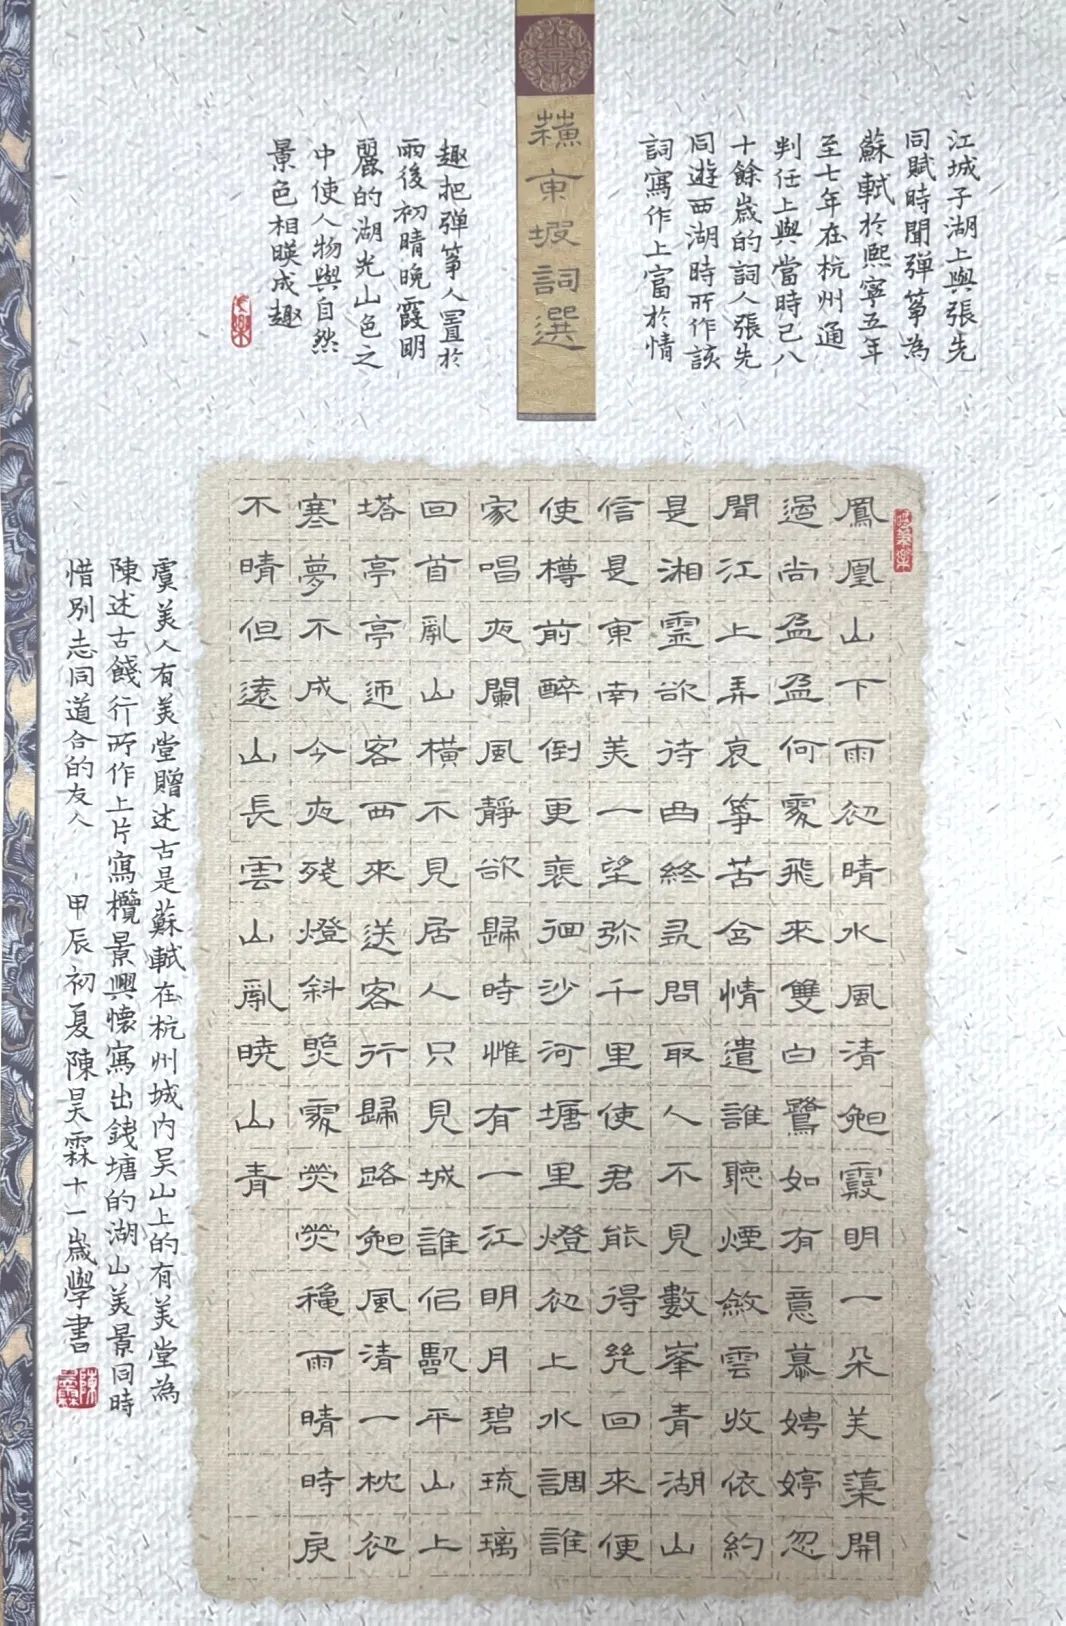 蘓東坡詞選
江城子湖上與張先
同賦時聞彈箏為
蘇軾於熙寧五年
至七年在杭州通
判任上與當時已八
十餘歲的詞人張先
同遊西湖時所作該
詞寫作上富於情
趣把彈箏人置於
雨後初晴晚霞明
麗的湖光山色之
中使人物與自然
景色相暎成趣
鳳凰山下雨初晴水風清晚霞明一朵芙蕖開
過尚盈盈何處飛來雙白鷺如有意慕娉婷忽
聞江上弄哀箏苦含情遣誰聽煙斂雲收依約
是湘靈欲待曲終尋問取人不見數峯青湖山
信是東南美一望弥千里使君能得幾回來便
使樽前醉倒更裴徊沙河塘里燈初上水調誰
家唱夜闌風靜欲歸時惟有一江明月碧琉璃
回首亂山橫不見居人只見城誰似臨平山上
塔亭亭迎客西來送客行歸路晚風清一枕初
寒夢不成今夜殘燈斜照處熒熒秋雨晴時戾
不晴但遠山長雲山亂曉山青
虞美人有美堂贈述古是蘇軾在杭州城內吳山上的有美堂為
陳述古餞行所作上片寫攬景興懷寫出錢塘的湖山美景同時
惜別志同道合的友人 甲辰初夏陳昊霖十一歲學書
陳昊霖